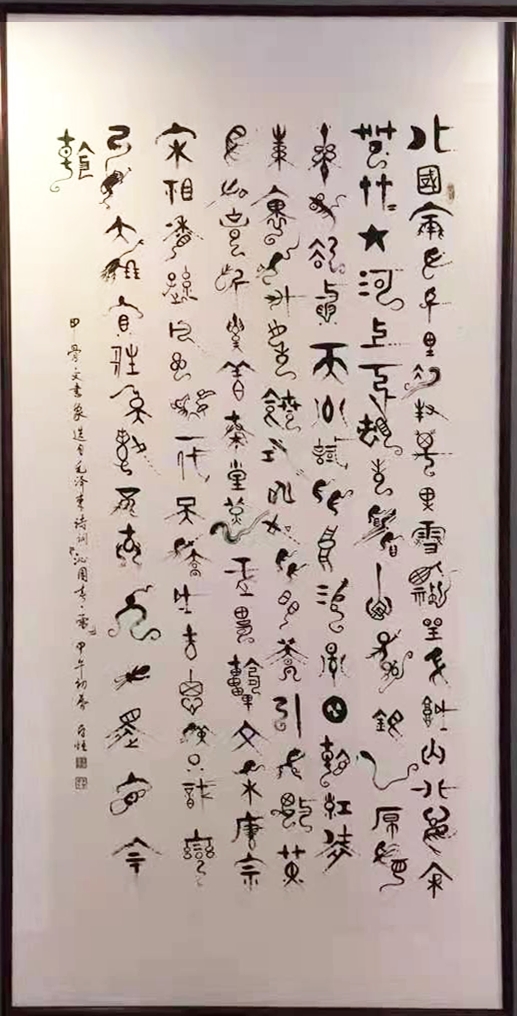 北國風光千里冰封萬里雪飄望長城內外惟餘
莽莽大河上下頓失滔滔山舞銀蛇原馳
蠟象欲與天公試比高須晴日看紅裝
素裹分外妖嬈江山如此多嬌引無數英
雄競折腰惜秦皇漢武略輸文采唐宗
宋祖稍遜風騷一代天驕成吉思汗只識彎
弓射大雕俱往矣數風流人物還看今
朝
甲骨文書象选自毛泽東诗词《沁園春·雪》甲午初春